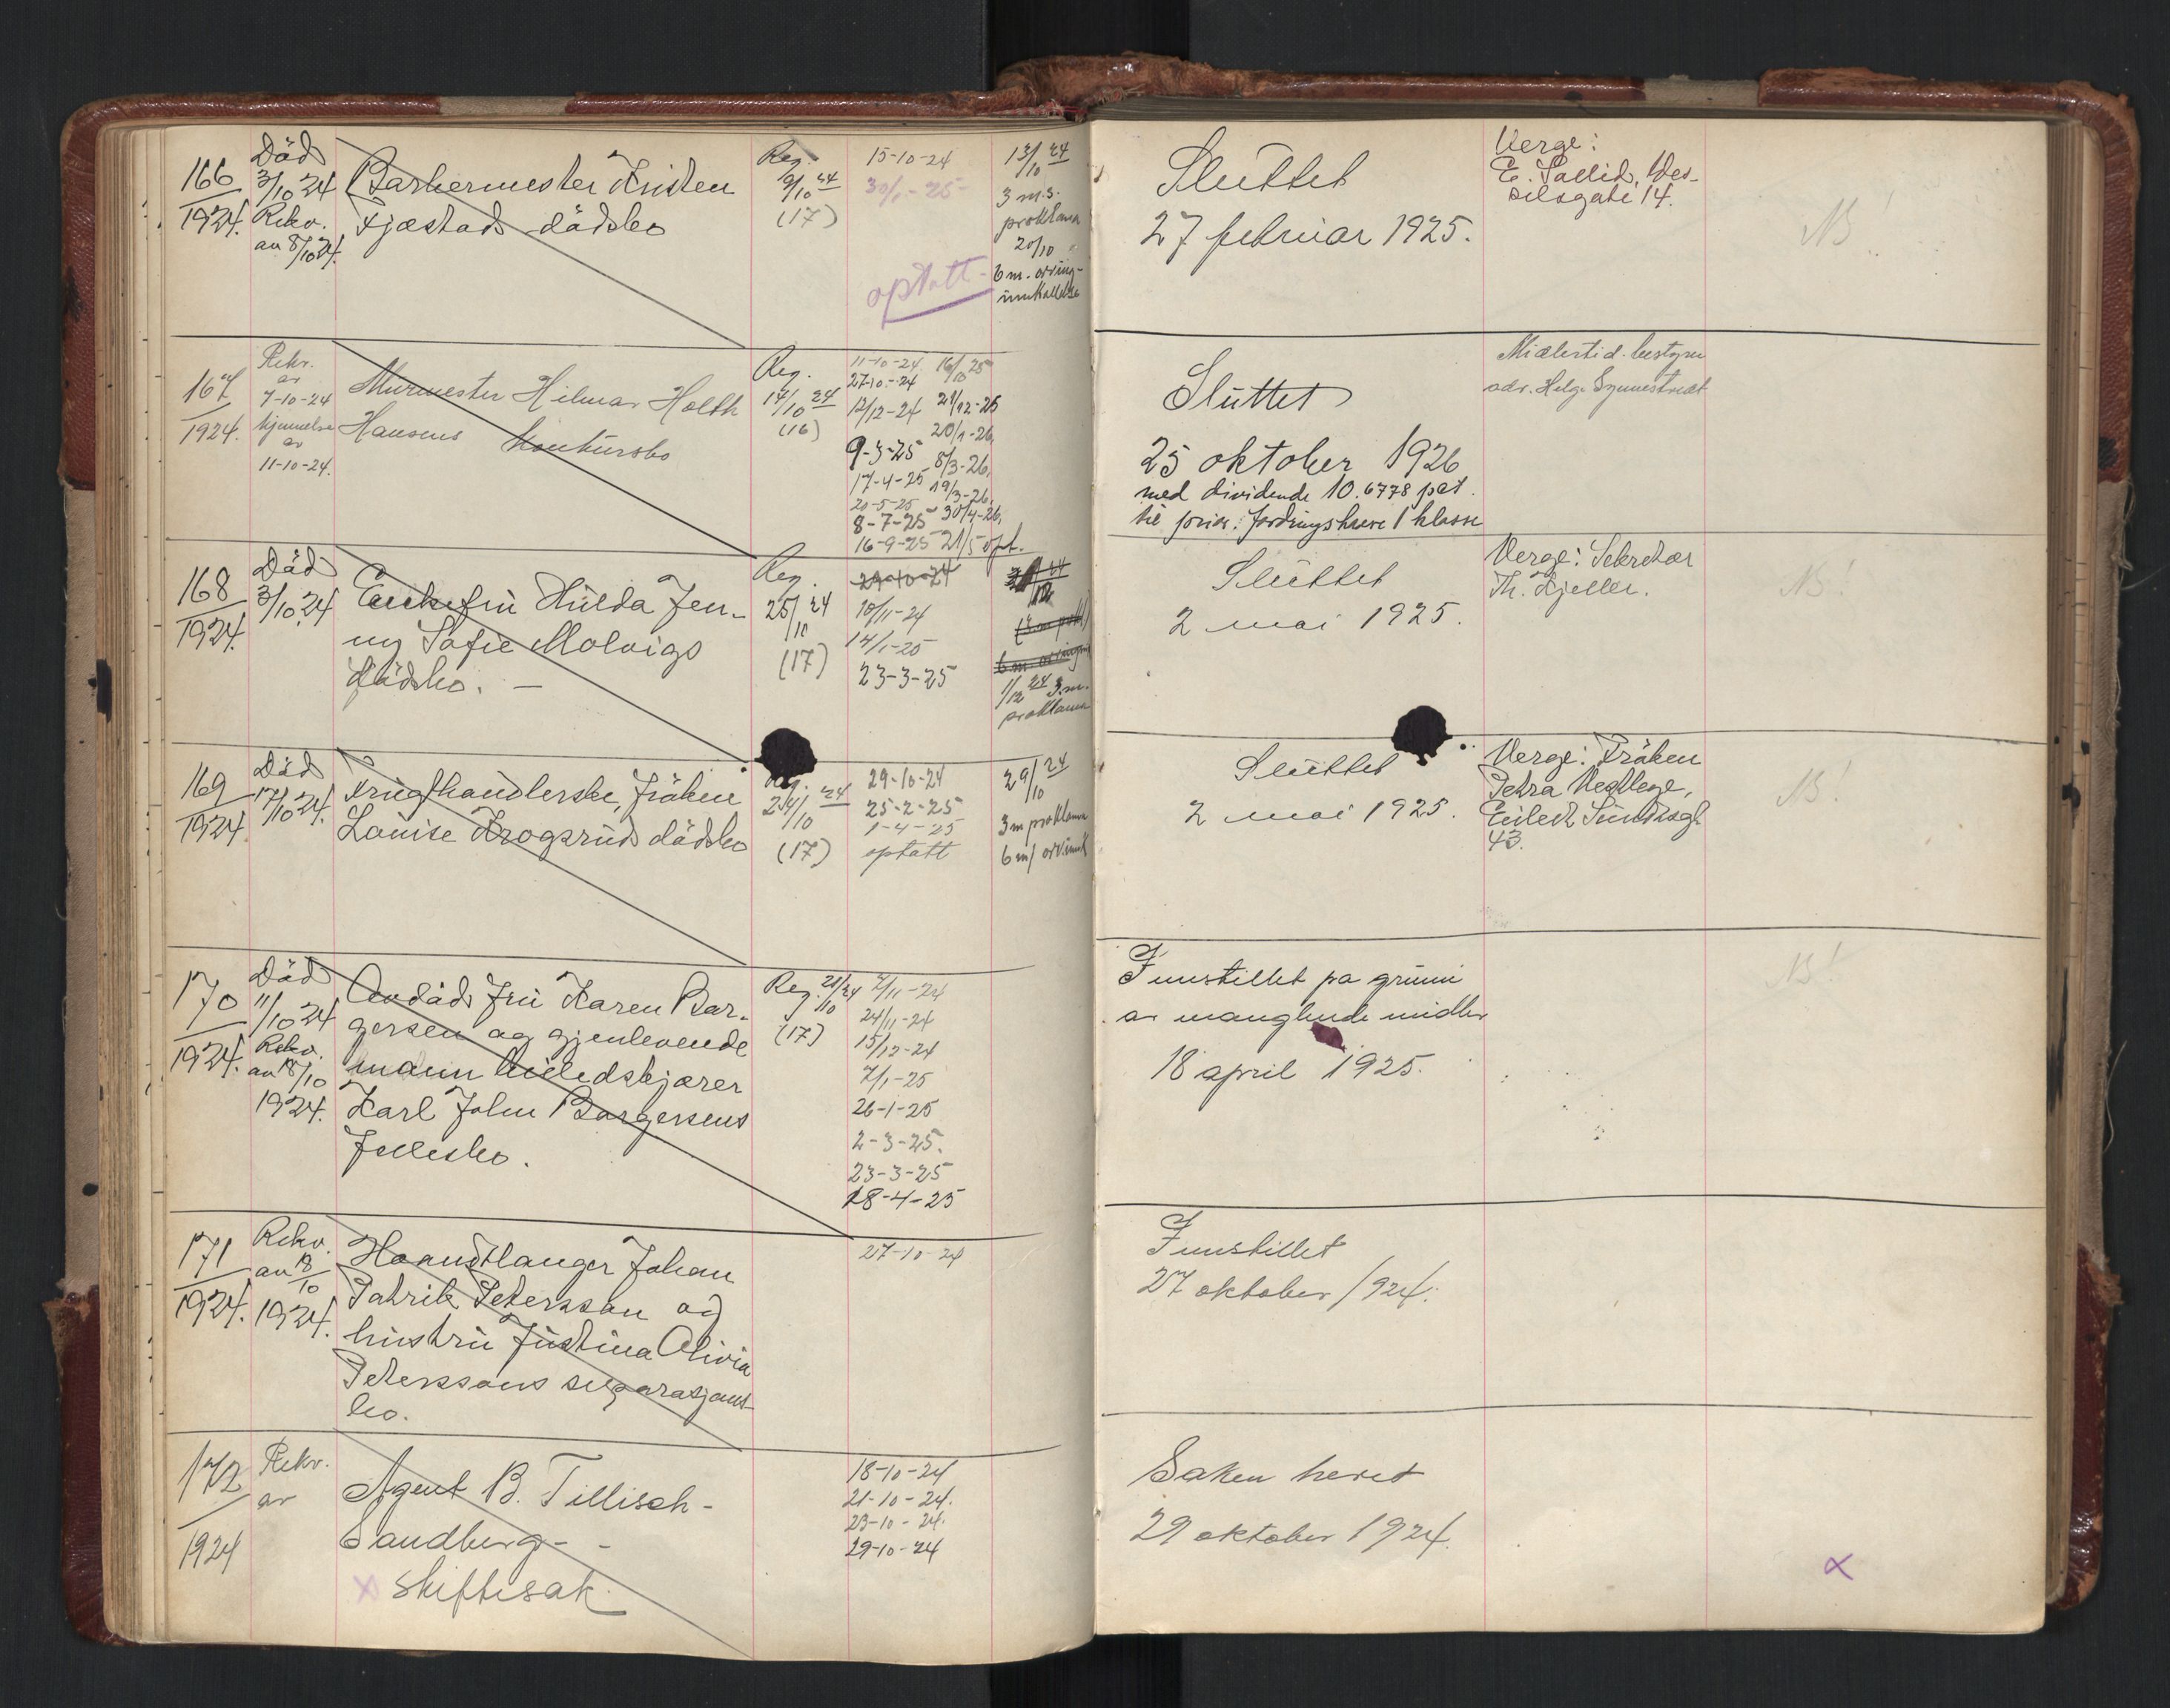 166
1924.
Död
3/10 24
Rekv.
av 8/10 24.
Barbermester Kristen
Fjæstads dödsbo
Reg.
9/10 24
(17)
15-10-24
30/1-25
optatt
13/10 24
3 m.s.
proklama
20/10 "
6 m. arving-
innkallelse
Sluttet
27 februar 1925.
Verge:
E. Sallid, Wes-
selsgate 14.
NB!
167
1924.
Rekv.
av
7-10-24
kjennelse
av
11-10-24.
Murmester Hilmar Holth
Hansens konkursbo
Reg.
14/10 24
(16)
11-10-24 16/10 25
27-10-24
12/12-24 21/12-25
20/1-26,
9-3-25 8/3-26,
17-4-25 19/3-26,
20-5-25 30/4-26,
8-7-25
16-9-25 21/5 opt.
Sluttet
25 oktober 1926
med dividende 10.6778 pct.
til prior. fordringshavere 1 klasse
Midlertid. bestyrer
adv. Helge Synnestvedt
168
1924.
Död
3/10 24
Enkefru Hulda Jen-
ny Sofie Molvigs
dödsbo. —
Reg.
25/10 24
(17)
29-10-24
10/11-24
14/1-25
23-3-25
1/12 24 3 m.
proklama
Sluttet
2 mai 1925.
Verge: Sekretær
Th. Kjeller.
NB!
169
1924.
Död
17/10 24.
Frugthandlerske, fröken
Louise Krogsruds dödsbo
Reg.
24/10 24
(17)
29-10-24
25-2-25
1-4-25
optatt
29/10 24
3 m proklama
6 m/ arv.innk
Sluttet
2 mai 1925.
Verge: Fröken
Petra Vestlege,
Eilert Sundtsgt
43.
NB!
170
1924.
Död
11/10 24
Rekv.
av 18/10
1924.
Avdöde fru Karen Bör-
gersen og gjenlevende
mann billedskjærer
Karl John Börgersens
fellesbo.
Reg. 21/10 24
(17)
7/11-24
24/11-24
15/12-24
7/1-25
26-1-25
2-3-25.
23-3-25
18-4-25
Innstillet på grunn
av manglende midler
18 april 1925.
NB!
171
1924.
Rekv.
av 18/10
1924.
Haandlanger Johan
Patrik Petersson og
hustru Justina Olivia
Peterssons separasjons-
bo.
27-10-24
Innstillet
27 oktober 1924.
172
1924
Rekv.
av
Agent B. Tillisch-
Sandberg- -
x skiftesak.
18-10-24
21-10-24.
23-10-24.
29-10-24
Saken hevet
29 oktober 1924.
x